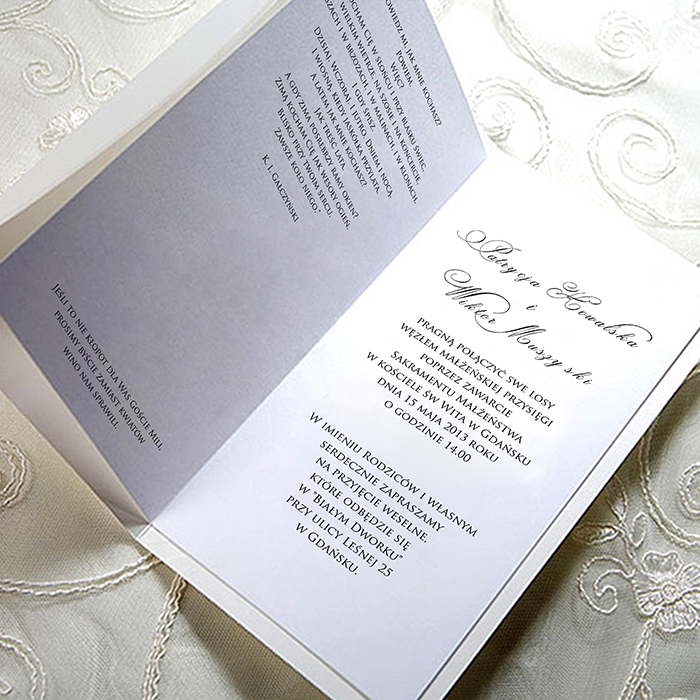 POWIEDZ MI, JAK MNIE KOCHASZ?
POWIEM.
WIĘC?
KOCHAM CIĘ W SŁOŃCU I PRZY BLASKU ŚWIEC.
WIELKIM WIETRZE, NA SZOSIE I NA KONCERCIE.
BZACH I W BRZOZACH, I W MALINACH I W KLONACH.
I GDY ŚPISZ.
DZISIAJ, WCZORAJ, I JUTRO, DNIEM I NOCĄ.
I WIOSNĄ, KIEDY JASKÓŁKA PRZYLATA.
A LATEM JAK MNIE KOCHASZ?
JAK TREŚĆ LATA.
A GDY ZIMA POSREBRZY RAMY OKIEN?
ZIMĄ KOCHAM CIĘ JAK WESOŁY OGIEŃ.
BLISKO PRZY TWOIM SERCU.
ZAWSZE KOŁO NIEGO."
K. I. GAŁCZYŃSKI
JEŚLI TO NIE KŁOPOT DLA WAS GOŚCIE MILI,
PROSIMY BYŚCIE ZAMIAST KWIATÓW
WINO NAM SPRAWILI.
Patrycja Kowalska
i
Wiktor Muszy ski
PRAGNĄ POŁĄCZYĆ SWE LOSY
WĘZŁEM MAŁŻEŃSKIEJ PRZYSIĘGI
POPRZEZ ZAWARCIE
SAKRAMENTU MAŁŻEŃSTWA
W KOŚCIELE ŚW WITA W GDAŃSKU
DNIA 15 MAJA 2013 ROKU
O GODZINIE 14.00
W IMIENIU RODZICÓW I WŁASNYM
SERDECZNIE ZAPRASZAMY
NA PRZYJĘCIE WESELNE,
KTÓRE ODBĘDZIE SIĘ
W "BIAŁYM DWORKU"
PRZY ULICY LEŚNEJ 25
W GDAŃSKU.